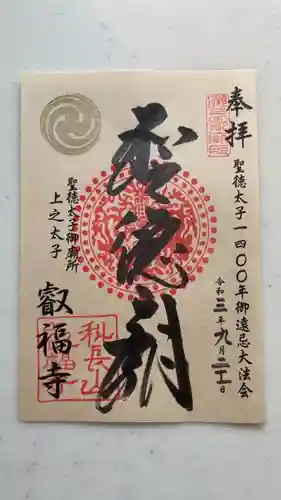 奉拝
聖徳太子一四〇〇年御遠忌大法会
令和三年九月二十日
聖徳廟
聖徳太子御廟所
上之太子
叡福寺